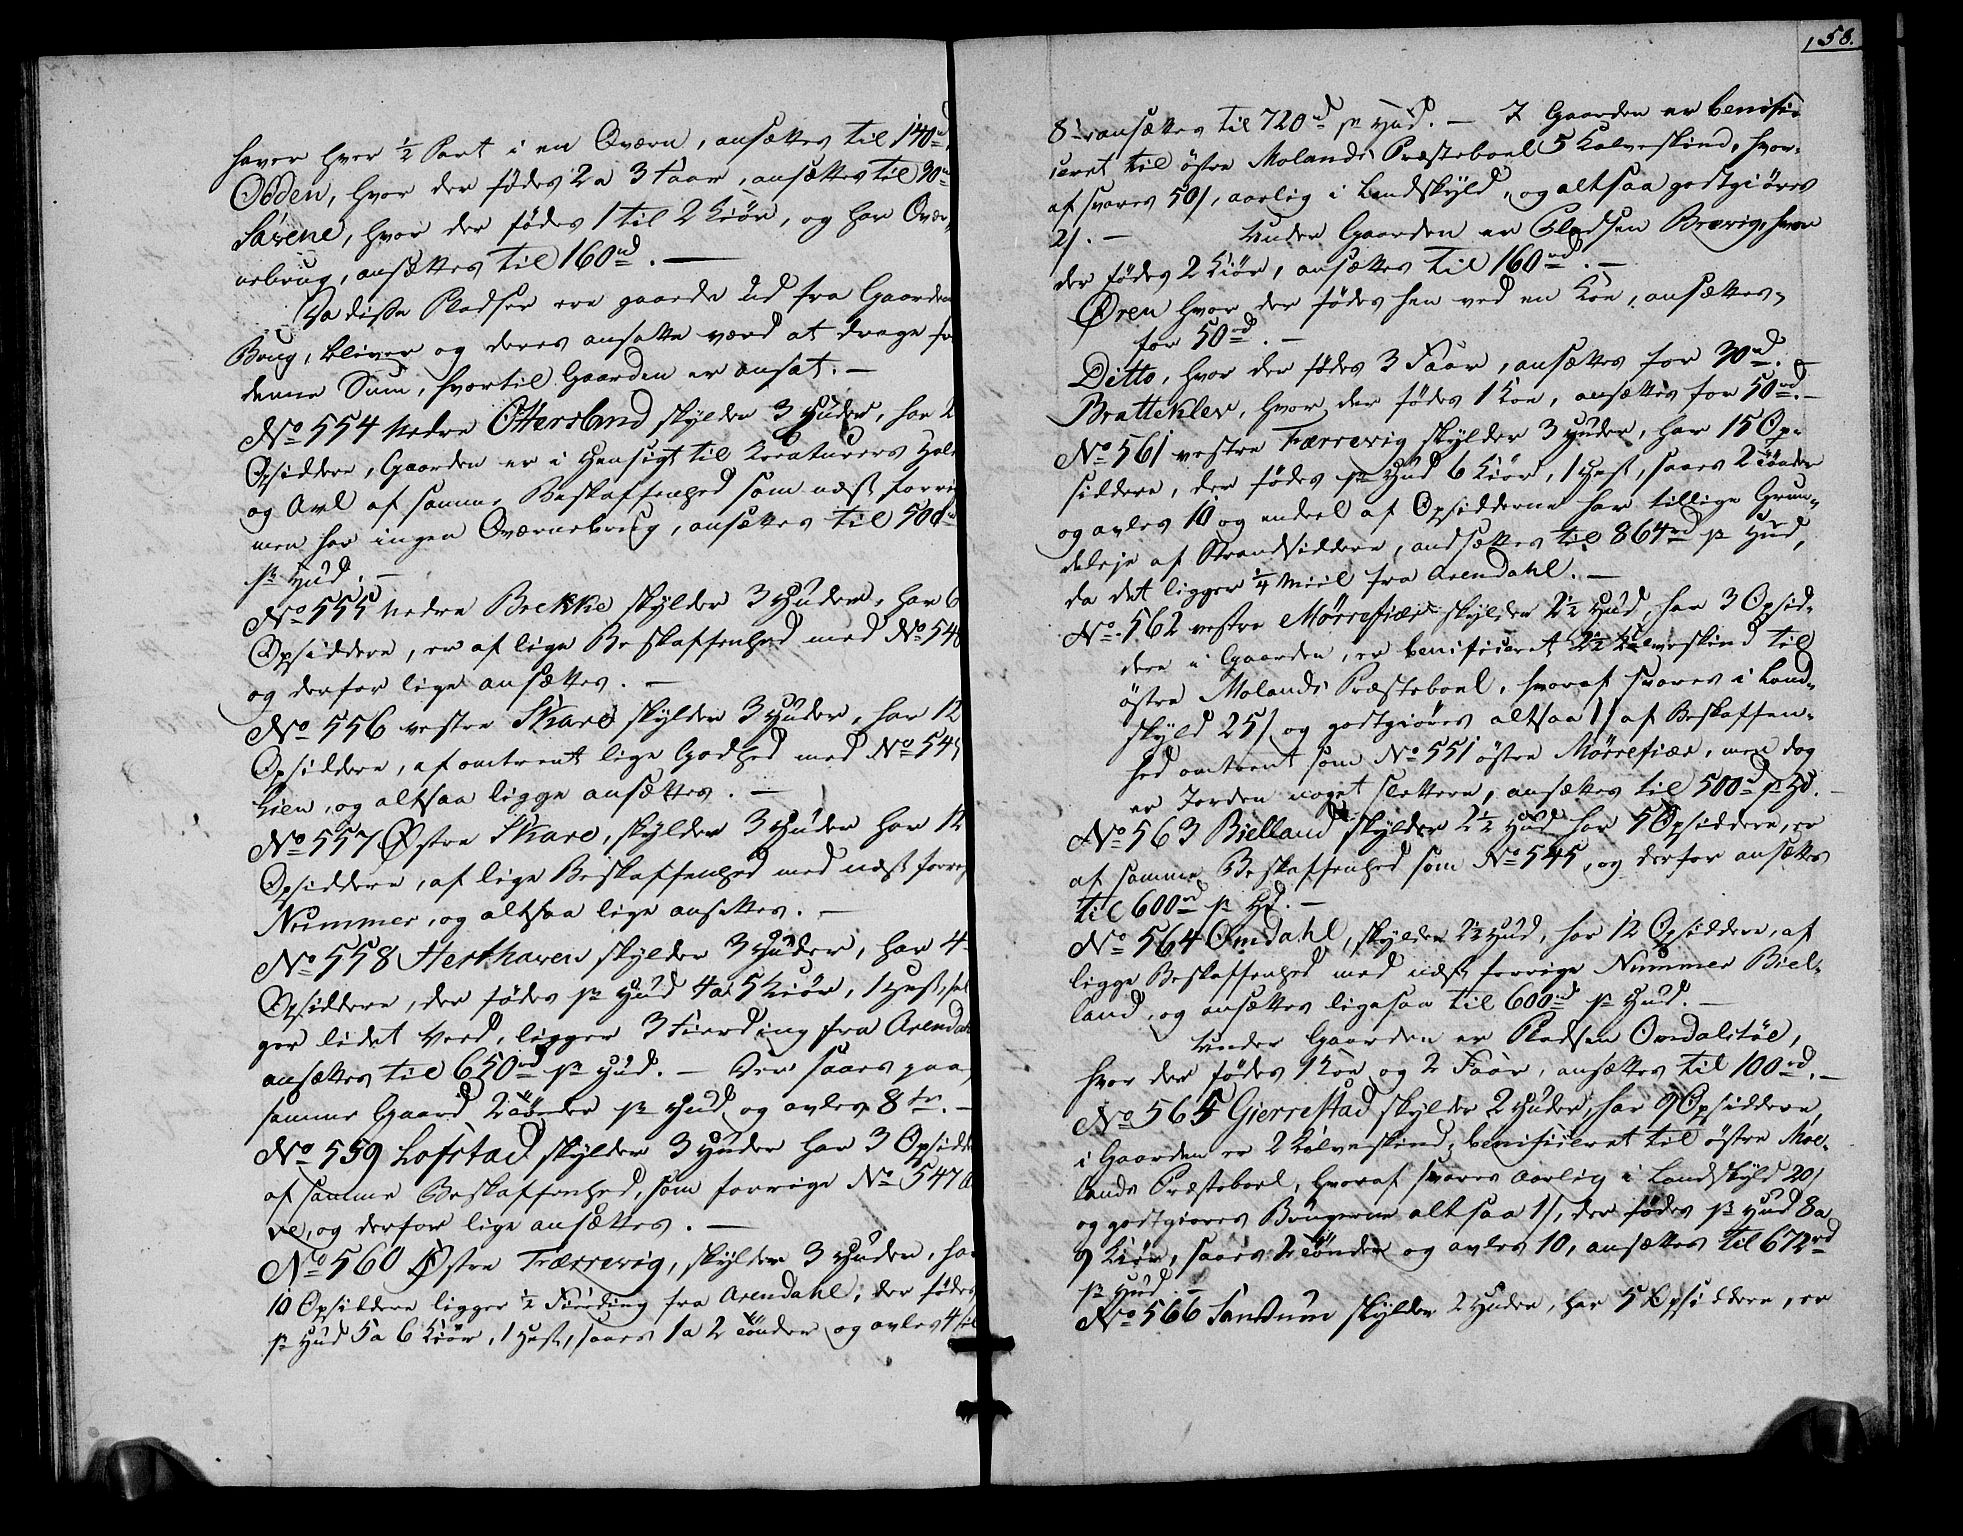 haver hver ½ Part i en Qværn, ansættes til 140rd
Odden, hvor der födes 2 a 3 Faar, ansættes til 30rd
Sävene, hvor der födes 1 til 2 Kiör, og har Qvær-
nebrug, ansættes til 160rd. —
Da disse Pladser ere gaaede ud fra Gaardens
Brug, bliver og deres ansatte værd at drage fra
denne Sum, hvortil Gaarden er ansat. —
No 554 Nedre Ottersland skylder 3 Huder, har 2
Opsiddere, Gaarden er i Hensigt til Kreaturers Hold
og Avl af samme Beskaffenhed som næst forrige
men har ingen Qværnebrug, ansættes til 500rd
pr Hud. —
No 555 Nedre Brekke skylder 3 Huder, har 6
Opsiddere, er af lige Beskaffenhed med No 548
og derfor lige ansættes. —
No 556 vestre Skare skylder 3 Huder, har 12
Opsiddere, af omtrent lige Godhed med No 545
Lien, og altsaa ligge ansættes. —
No 557 Østre Skare, skylder 3 Huder har 12
Opsiddere, af lige Beskaffenhed med næst forrige
Nummer, og altsaa lige ansættes. —
No 558 Herthaven skylder 3 Huder, har 4
Opsiddere, der födes pr Hud 4 a 5 Kiör, 1 Hest, sæl
ger lidet Veed, ligger 3 Fierding fra Arendahl
ansættes til 650rd pr Hud. — Der saaes paa
samme Gaard 2 Tönder pr Hud og avles 8 Tr. —
No 559 Lofstad skylder 3 Huder har 3 Opsiddere
af samme Beskaffenhed, som forrige No 547
ve, og derfor lige ansættes. —
No 560 Østre Færrevig, skylder 3 Huder, har
10 Opsiddere ligger ½ Fierding fra Arendahl, der födes
pr Hud 5 a 6 Kiör, 1 Hest, saaes 1 a 2 Tönder og avles 4 til
158.
8, ansættes til 720rd pr Hud. — I Gaarden er benifi-
ceret til östre Molands Præsteboel 5 Kalveskind, hvor-
af svares 50 s, aarlig i Landskyld, og altsaa godtgiöres
2 s. — Under Gaarden er Pladsen Brævig, hvor
der födes 2 Kiör, ansættes til 160rd. —
Øren hvor der födes hen ved en Koe, ansættes
for 50rd. —
Ditto, hvor der födes 3 Faar, ansættes for 30rd. —
Bratteklev, hvor der födes 1 Koe, ansættes for 50rd. —
No 561 vestre Færrevig skylder 3 Huder, har 15 Op-
siddere, der födes pr Hud 6 Kiör, 1 Hest, saaes 2 Tönder
og avles 10 og endeel af Opsidderne har tillige Grun-
deleje af Strandsiddere, andsættes til 864rd pr Hud,
da det ligger ¼ Miil fra Arendahl. —
No 562 vestre Mörrefiær skylder 2½ Hud, har 3 Opsid-
dere i Gaarden, er benificeret 2½ Kalveskind til
östre Molands Præsteboel, hvoraf svares i Land-
skyld 25 s og godtgiöres altsaa 1 s af Beskaffen-
hed omtrent som No 551 östre Mörrefiær, men dog
er Jorden noget slettere, ansættes til 500rd pr Hd. —
No 563 Bielland skylder 2½ Hud har 5 Opsiddere, er
af samme Beskaffenhed som No 545, og derfor ansættes
til 600rd pr Hd. —
No 564 Omdahl, skylder 2½ Hud, har 12 Opsiddere, af
ligge Beskaffenhed med næst forrige Nummer Biel-
land, og ansættes ligesaa til 600rd pr Hud. —
Under Gaarden er Pladsen Omdalstöe,
hvor der födes 1 Koe og 2 Faar, ansættes til 100rd. —
No 565 Gjerrestad skylder 2 Huder, har 9 Opsiddere,
i Gaarden er 2 Kalveskind, benificieret til östre Mo-
lands Præsteboel, hvoraf svares aarlig i Landskyld 20 s
og godtgiöres Brugerne altsaa 1 s, der födes pr Hud 8 a
9 Kiör, saaes 2 Tönder og avles 10, ansættes til 672rd
pr Hud. —
No 566 Sandum skylder 2 Huder, har 5 Opsiddere, er